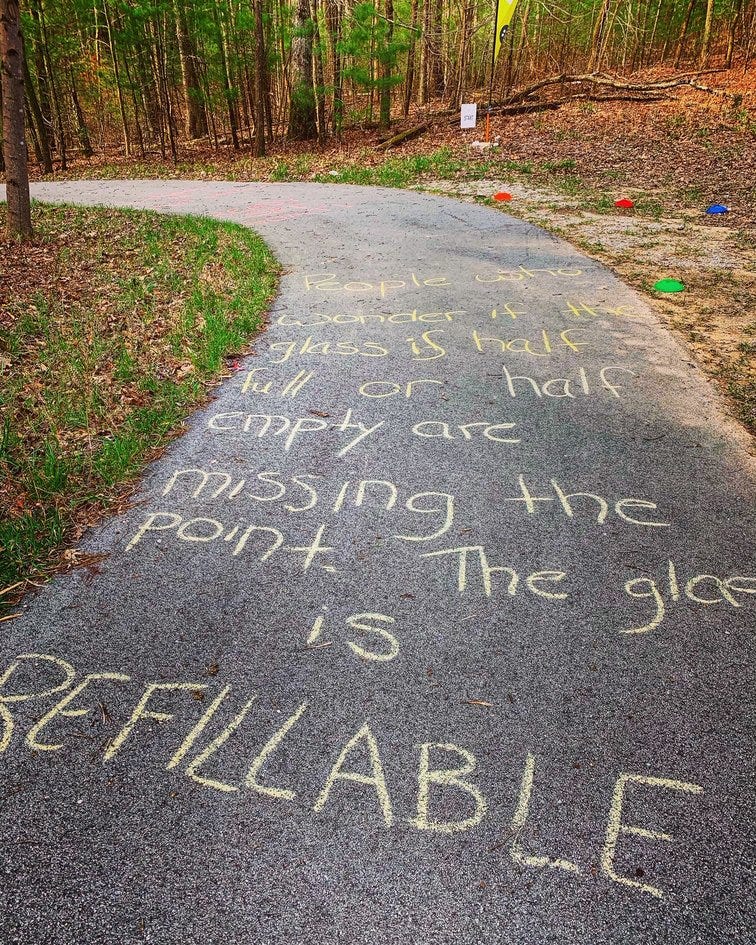 START
People who
wonder if the
glass if half
full or half
empty are
missing the
point. The glas
is
REFILLABLE